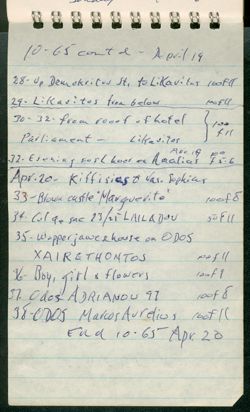 10-65 cont'd - April 19
28- Up Demokritus St. to Likavitus 100 f11
29- Likavitos from below 100 f11
30-32- from roof of hotel
Parliament - Likavitos 100 f11
Apr. 19
32- Evening rush hour on
Apr. 20- Kiffisias & Vas. Sophias
33- Brown castle "Marguerite" 100 f8
34- Col. 50 f11
35- house on ODOS
XAIRETHONTOS 100 f11
36- Boy, girl & flowers 100 f
37- Odos ADRIANOU 97 100 f8
38- ODOS Marcos Aurelius 100 f11
End 10-65 Apr. 20